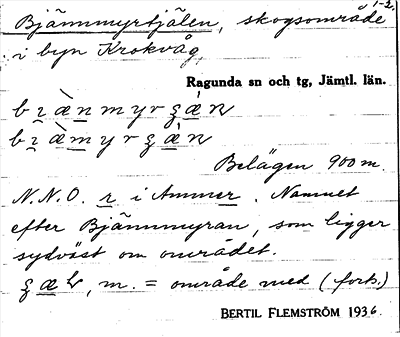 1-2.
Bjännmyrtjälen, skogsområde
i byn Krokvåg,
Ragunda sn och tg, Jämtl. län.
Belägen 900 m.
N.N.O. r i Ammer. Namnet
efter Bjännmyran, som ligger
sydväst om området.
, m. = område med (forts.)
BERTIL FLEMSTRÖM 1936.